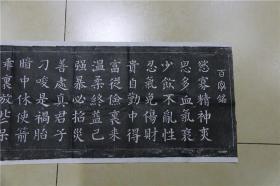 百忍铭
慾寡精神爽
思多血氣衰
少飲不亂性
忍氣免傷財
貴自勤中得
富從儉裏來
温柔終益己
強暴必招災
善處真君子
刁唆是禍胎
暗中休使箭
乖裏放些呆